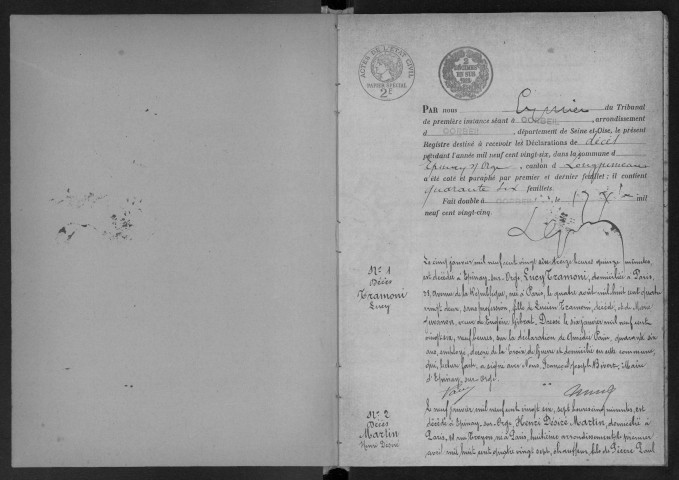 ACTES DE L'ETAT CIVIL
PAPIER SPECIAL
2F
2
DECIMES
EN SUS
PAR nous du Tribunal
de première instance séant à CORBEIL, arrondissement
d CORBEIL, département de Seine-et-Oise, le présent
Registre destiné à recevoir les Déclarations de décès
pendant l'année mil neuf cent vingt-six, dans la commune d
Epinay s/ Orge, canton de Longjumeau
a été coté et paraphé par premier et dernier feuillet; il contient
quarante six feuillets.
Fait double à CORBEIL, le 17 mil
neuf cent vingt-cinq.
N° 1
Décès
Tramoni
Lucy
Le cinq janvier mil neuf cent vingt six treize heures quinze minutes,
est décédée à Epinay-sur-Orge, Lucy Tramoni, domiciliée à Paris,
21 Avenue de la République, née à Paris, le quatre août mil huit cent quatre
vingt deux, sans profession, fille de Lucien Tramoni, décédé, et de Marie
veuve de Eugène Gibeal. Dressé le six janvier mil neuf cent
vingt six, neuf heures, sur la déclaration de Amédée Pain, quarante six
ans, employé, décoré de la Croix de Guerre et domicilié en cette commune,
qui, lecture fait, a signé avec Nous Joseph Maire
d'Epinay-sur-Orge.
N° 2
Décès
Martin
Henri Désiré
Le neuf janvier mil neuf cent vingt six, sept heures cinq minutes, est
décédé à Epinay-sur-Orge Henri Désiré Martin, domicilié à
Paris, 28 rue Troyon, né à Paris, huitième arrondissement le premier
avril mil huit cent quatre vingt sept, chauffeur, fils de Pierre Paul